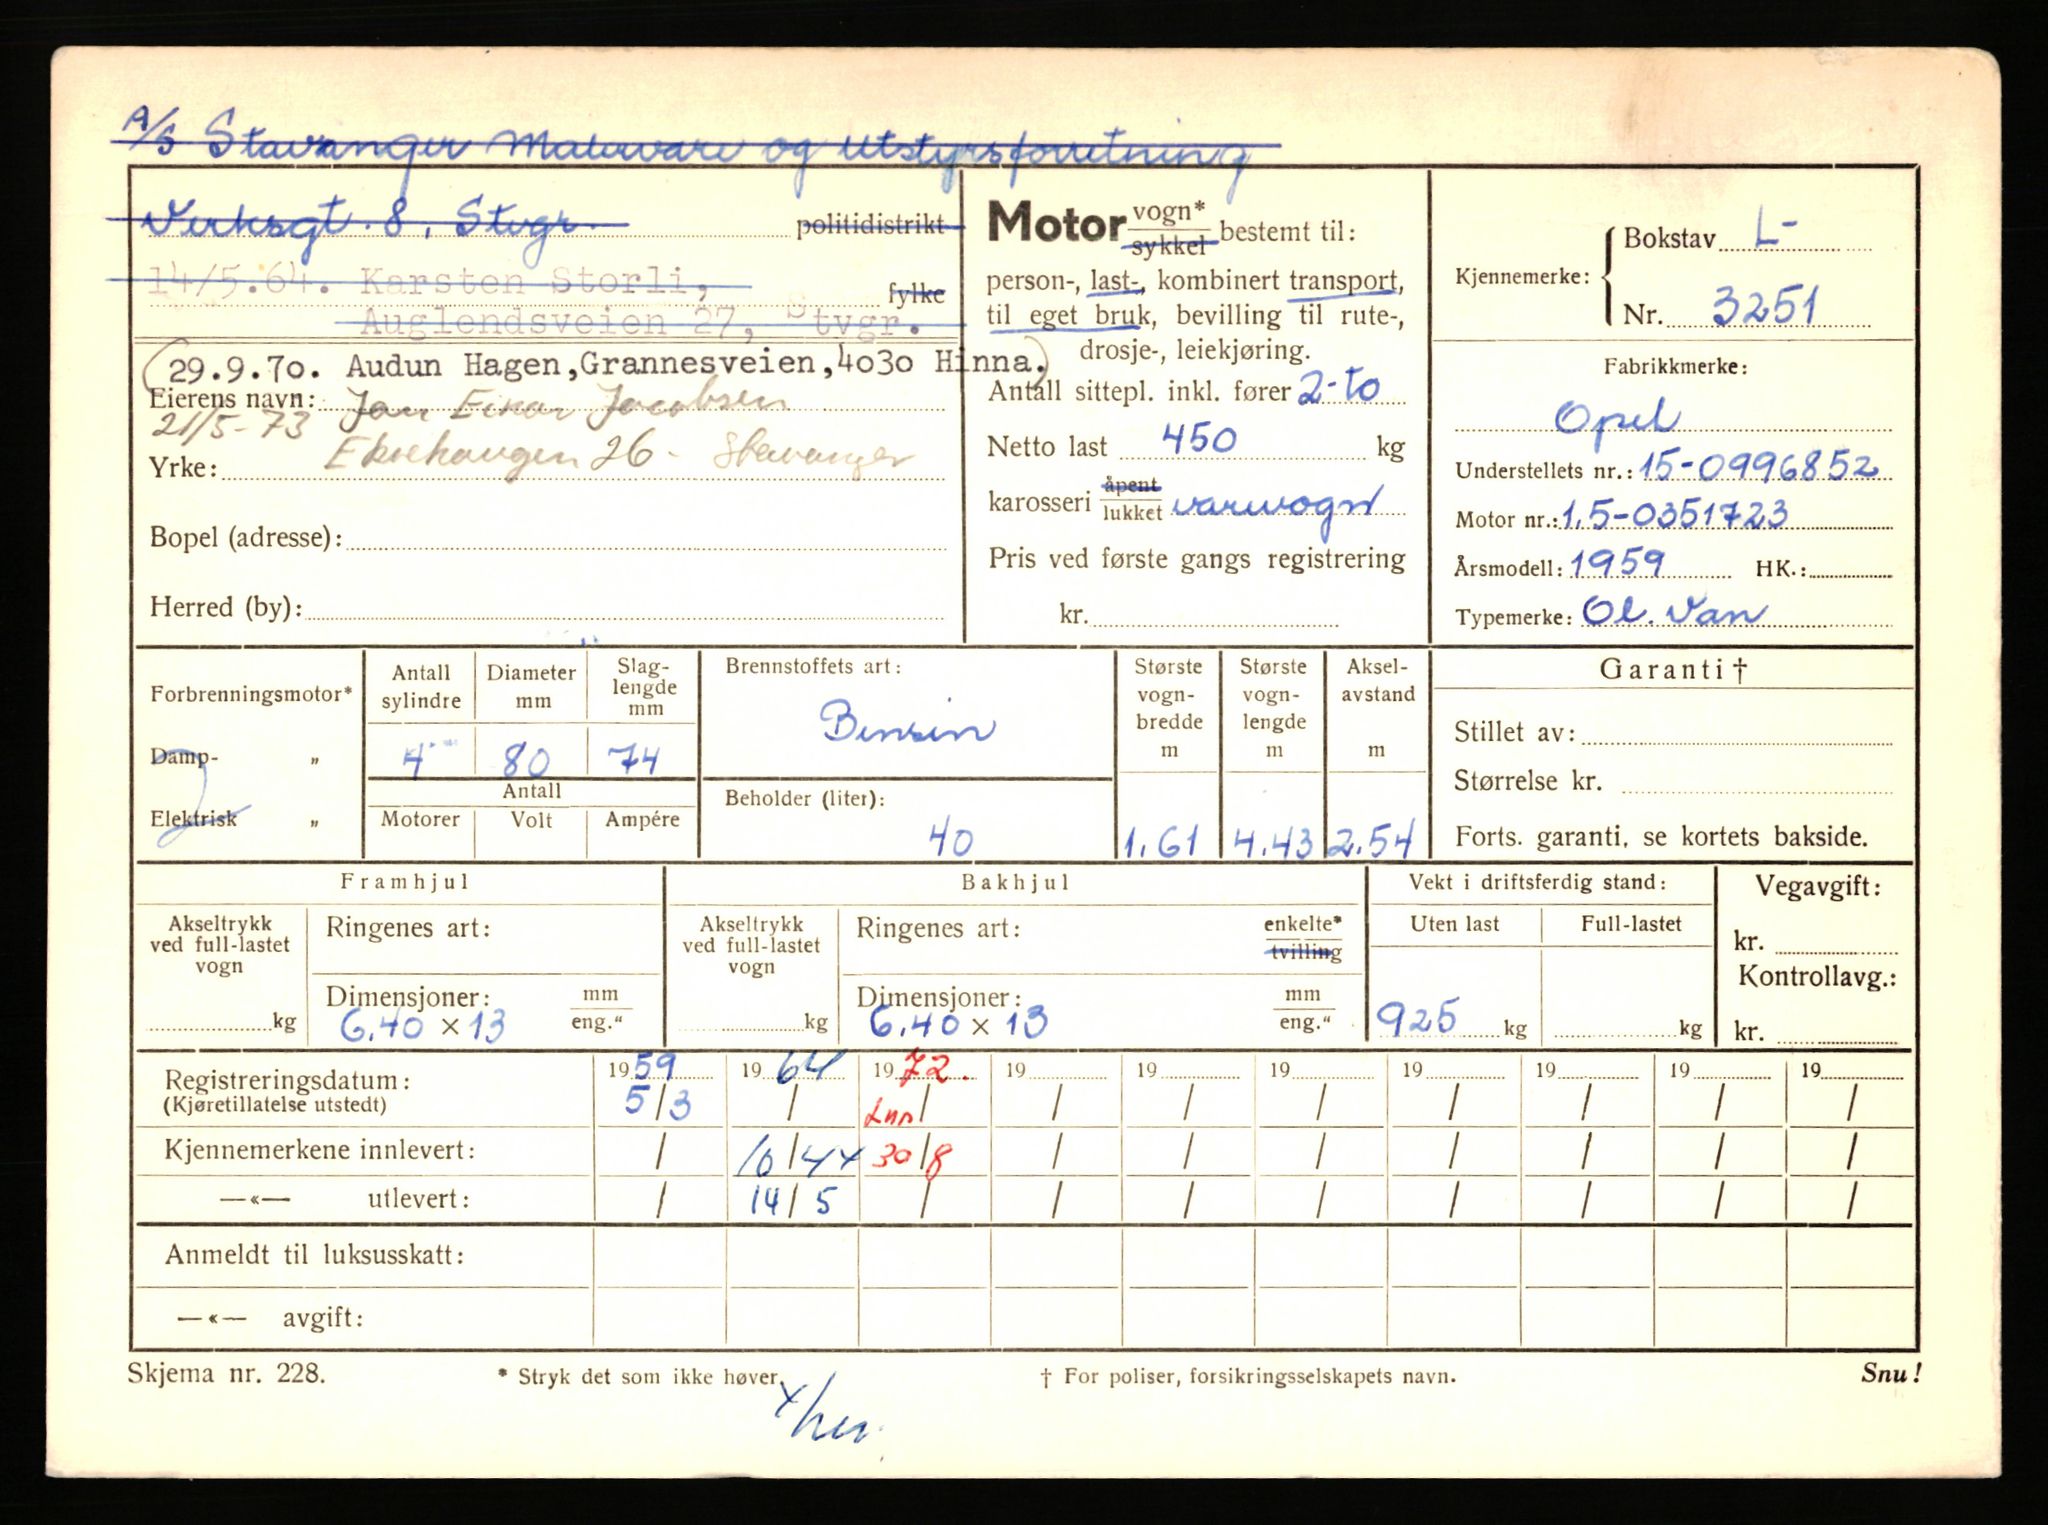 A/S Stavanger Malervare og utstyrsforretning
Verksgt. 8, Stvgr. politidistrikt
14/5.64. Karsten Storli, fylke
Auglendsveien 27, Stvgr.
(29.9.70. Audun Hagen, Grannesveien, 4030 Hinna.)
Eierens navn: Jan Einar Jacobsen
21/5-73
Yrke: 26 - Stavanger
Bopel (adresse):
Herred (by):
Motor vogn*
sykkel bestemt til:
person-, last-, kombinert transport,
til eget bruk, bevilling til rute-,
drosje-, leiekjøring.
Antall sittepl. inkl. fører 2-to
Netto last 450 kg
karosseri åpent
lukket varevogn
Pris ved første gangs registrering
kr.
Kjennemerke: Bokstav L-
Nr. 3251
Fabrikkmerke:
Opel
Understellets nr.: 15-0996852
Motor nr.: 1.5-0351723
Årsmodell: 1959 HK.:
Typemerke: Ol. Van
Forbrenningsmotor*
Damp- "
Elektrisk "
Antall sylindre
Diameter mm
Slag-
lengde
mm
4 80 74
Antall
Motorer Volt Ampére
Brennstoffets art:
Bensin
Beholder (liter):
40
Største
vogn-
bredde
m
1.61
Største
vogn-
lengde
m
4.43
Aksel-
avstand
m
2.54
Garanti †
Stillet av:
Størrelse kr.
Forts. garanti, se kortets bakside.
Framhjul
Akseltrykk
ved full-lastet
vogn
kg
Ringenes art:
Dimensjoner: mm
6.40 x 13 eng."
Bakhjul
Akseltrykk
ved full-lastet
vogn
kg
Ringenes art: enkelte*
tvilling
Dimensjoner: mm
6.40 x 13 eng."
Vekt i driftsferdig stand:
Uten last Full-lastet
925 kg kg
Vegavgift:
kr.
Kontrollavg.:
kr.
Registreringsdatum: 1959 1964 1972. 19 19 19 19 19 19 19
(Kjøretillatelse utstedt) 5/3 / / / / / / / / /
Kjennemerkene innlevert: / 10/4 x 30/8 / / / / / / /
—«— utlevert: / 14/5 / / / / / / / /
Anmeldt til luksusskatt:
—«— avgift:
Skjema nr. 228. * Stryk det som ikke høver. † For poliser, forsikringsselskapets navn. Snu!